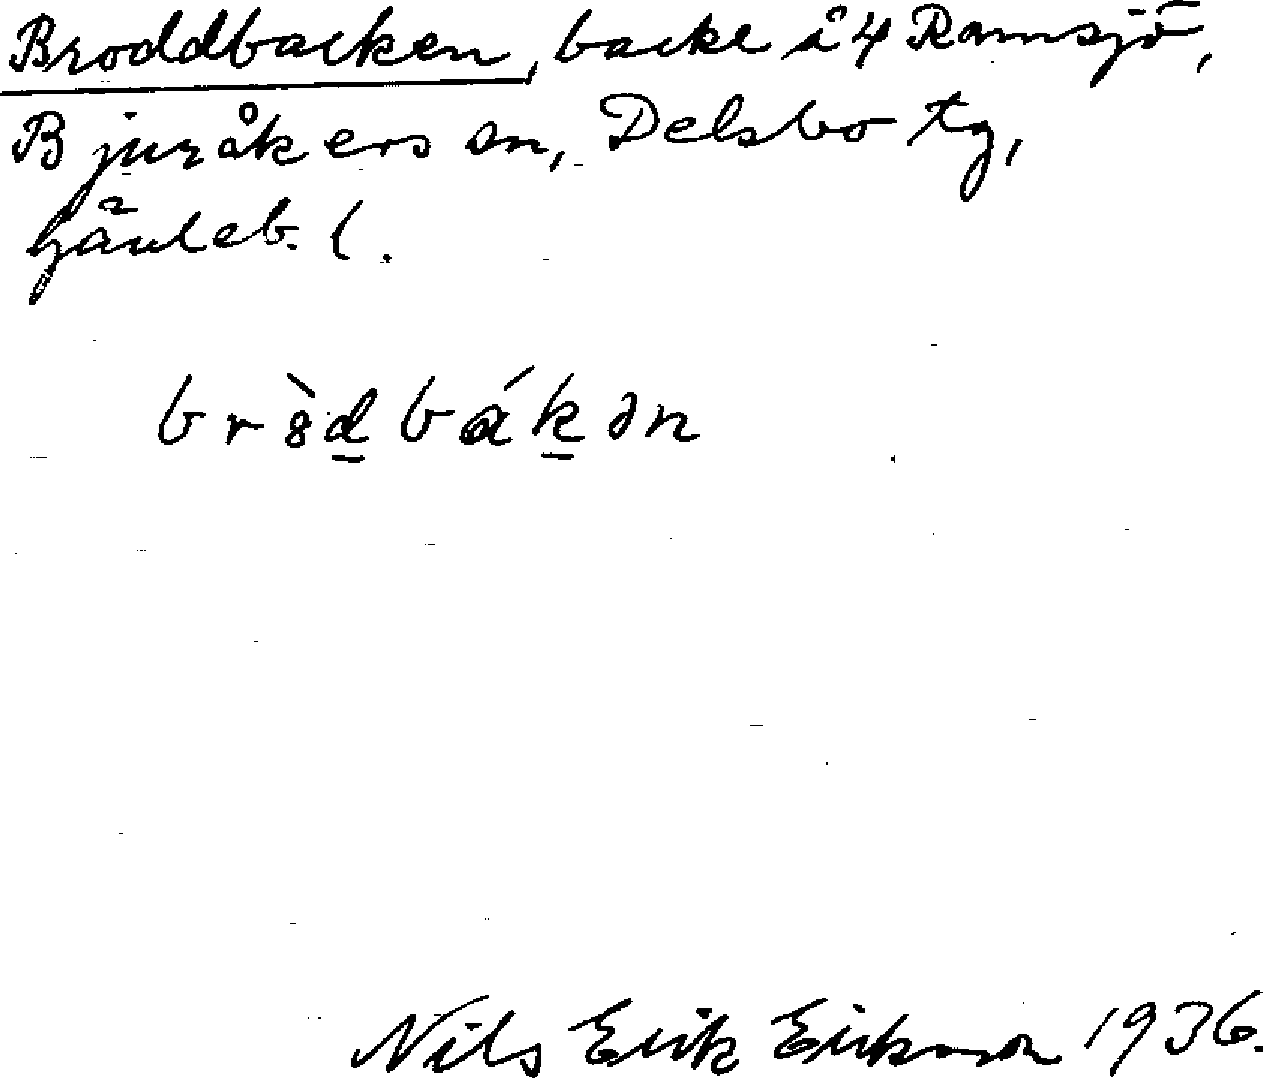 Broddbacken, backe å 4 Ramsjö,
Bjuråkers sn, Delsbo tg,
Gävleb. l.
bròd̲bák̲ən
Nils Erik Erikson 1936.